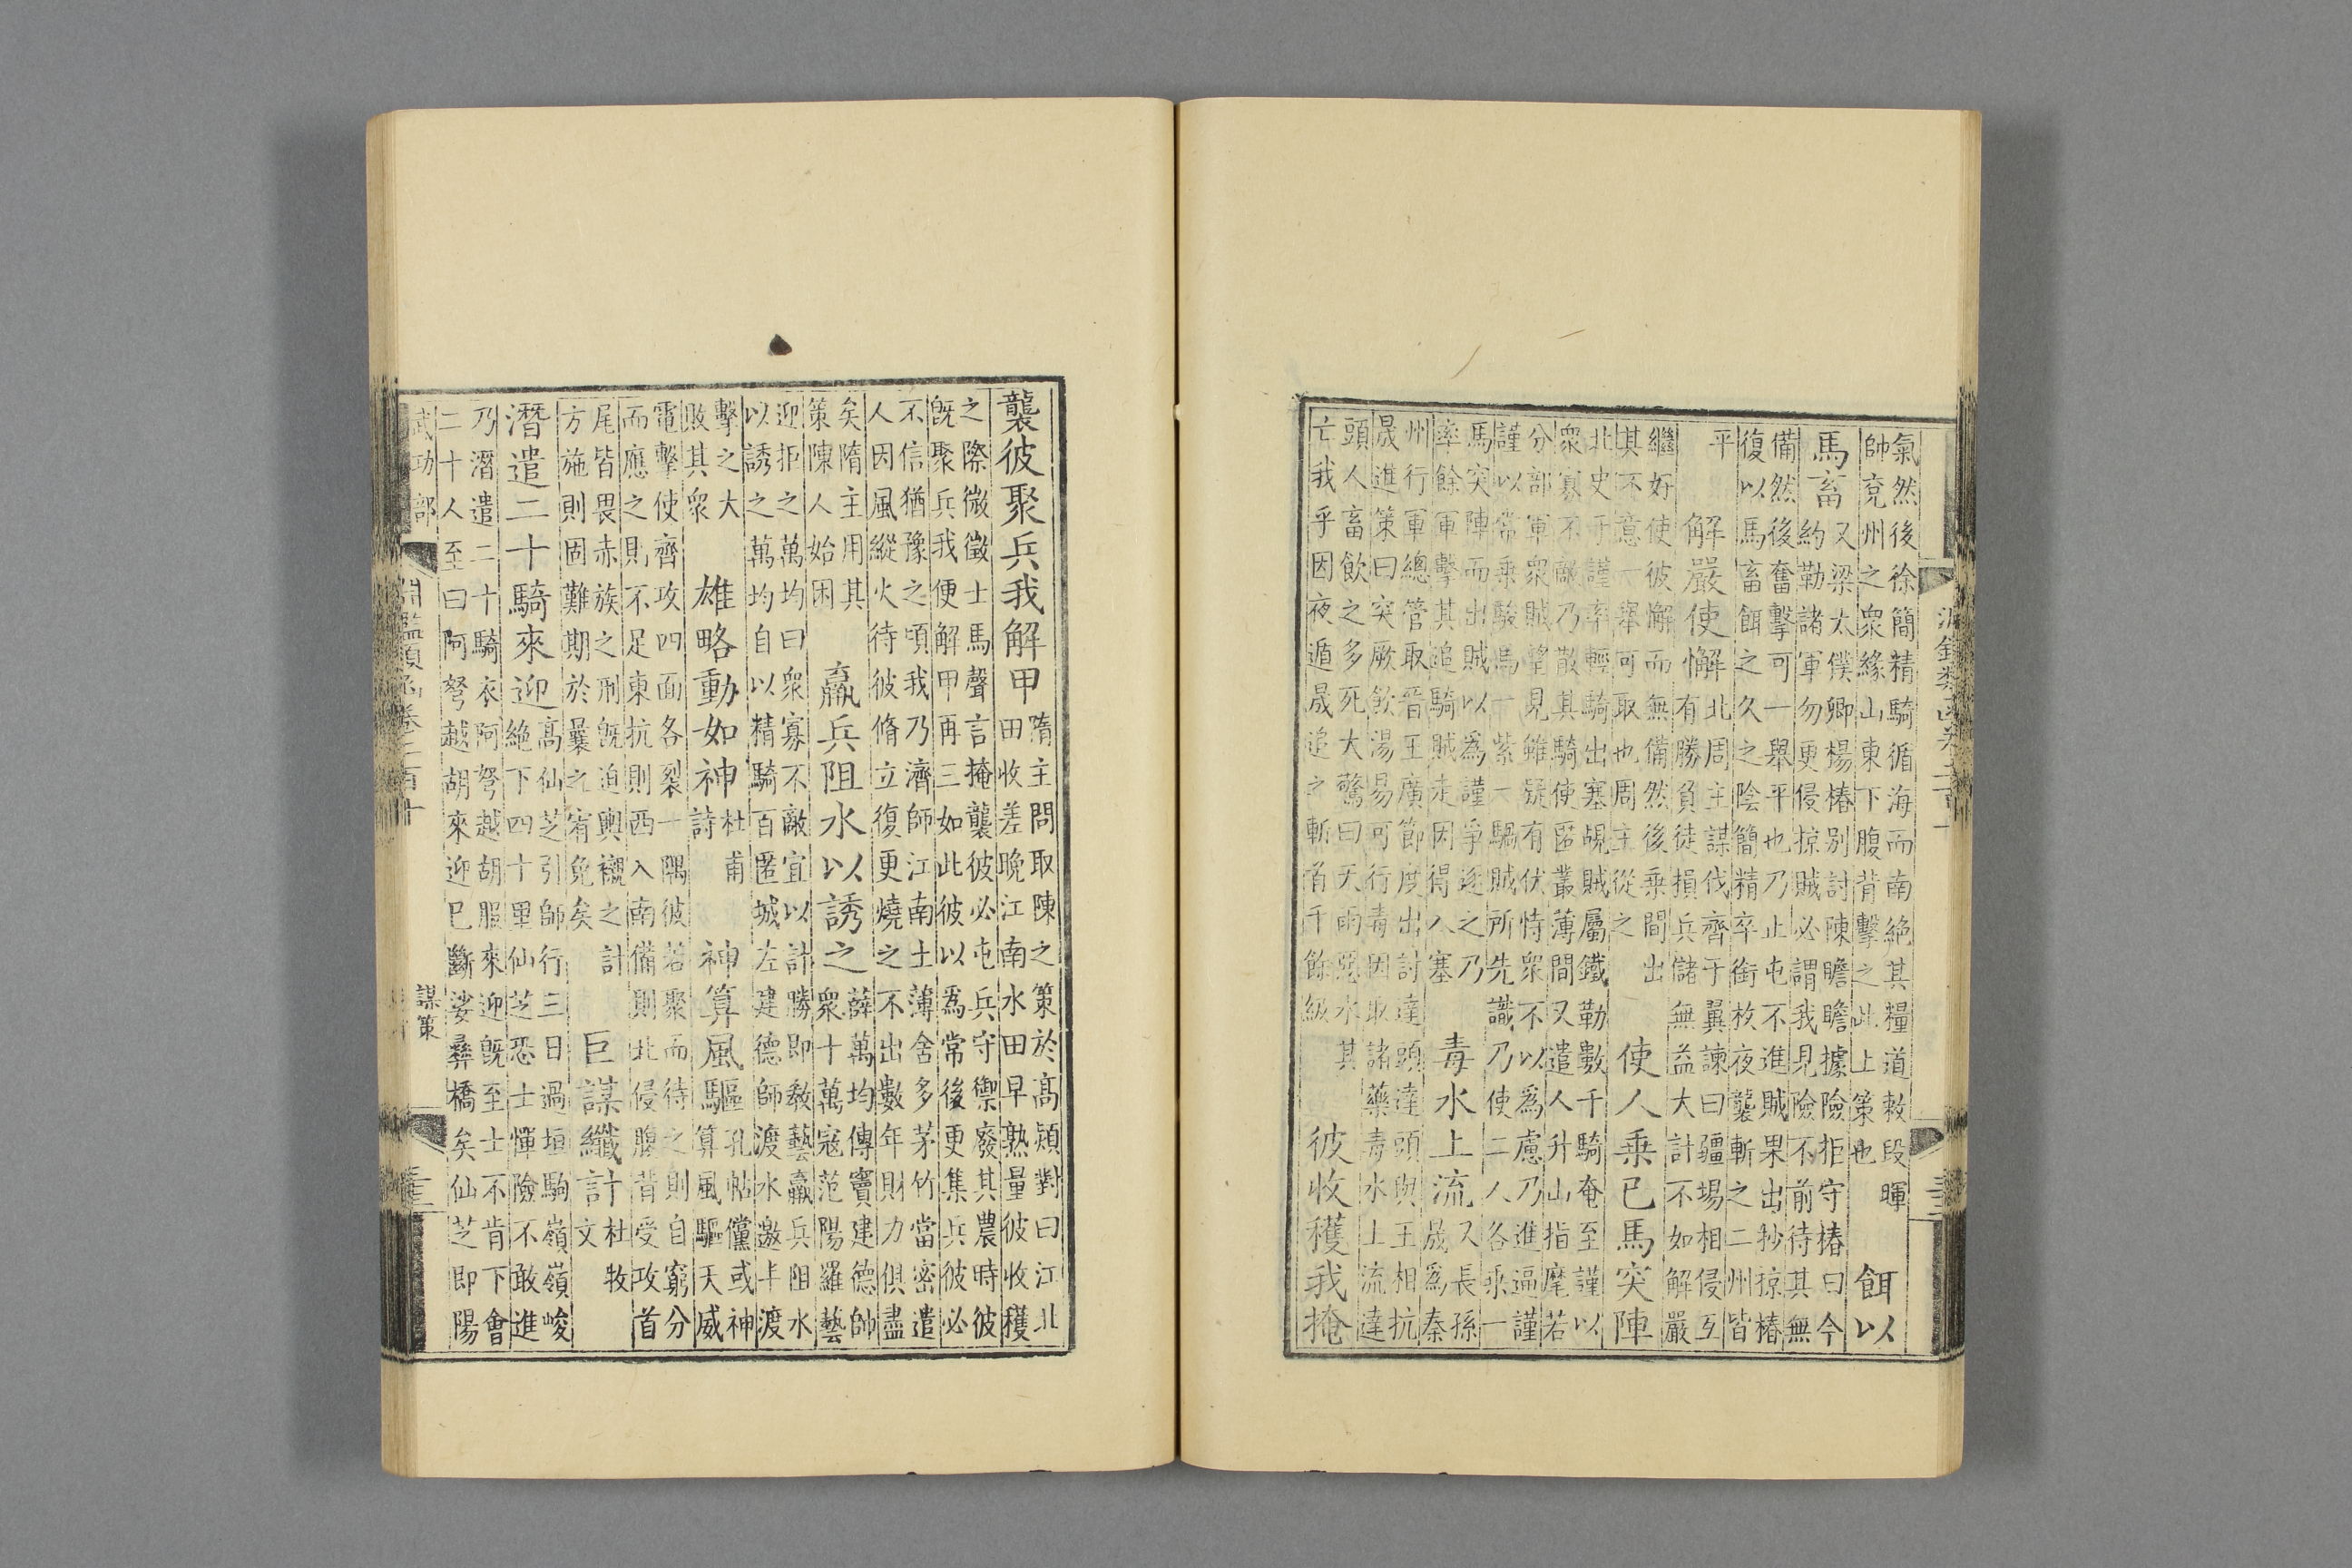 氣然後徐簡精騎循海而南絶其糧道敕段暉
帥兗州之衆緣山東下腹背擊之此上策也
餌以
馬畜
又梁太僕卿楊椿別討陳瞻瞻據險拒守椿曰今
約勒諸軍勿更侵掠賊必謂我見險不前待其無
備然後奮擊可一舉平也乃止屯不進賊果出抄掠椿
復以馬畜餌之久之陰簡精卒銜枚夜襲斬之二州皆
平
解嚴使懈
北周主謀伐齊于翼諫曰疆埸相侵互
有勝負徒損兵儲無益大計不如解嚴
繼好使彼懈而無備然後乗間出
其不意一舉可取也周主從之
使人乗已馬突陣
北史于謹率輕騎出塞覘賊屬鐵勒數千騎奄至謹以
衆寡不敵乃散其騎使匿叢薄間又遣人升山指麾若
分部軍衆賊望見雖疑有伏恃衆不以爲慮乃進逼謹
謹以常乗駿馬一紫一騧賊所先識乃使二人各乗一
馬突陣而出賊以爲謹爭逐之乃
率餘軍擊其追騎賊走因得入塞
毒水上流
又長孫
晟爲秦
州行軍總管取晉王廣節度出討達頭達頭與王相抗
晟進策曰突厥飲湯易可行毒因取諸藥毒水上流達
頭人畜飲之多死大驚曰天雨惡水其
亡我乎因夜遁晟追之斬首千餘級
彼收穫我掩
襲彼聚兵我解甲
隋主問取陳之策於高熲對曰江北
田收差晚江南水田早熟量彼收穫
之際微徵士馬聲言掩襲彼必屯兵守禦廢其農時彼
既聚兵我便解甲再三如此彼以爲常後更集兵彼必
不信猶豫之頃我乃濟師江南土薄舍多茅竹當密遣
人因風縱火待彼脩立復更燒之不出數年財力俱盡
矣隋主用其
策陳人始困
羸兵阻水以誘之
薛萬均傳竇建德帥
衆十萬寇范陽羅藝
迎拒之萬均曰衆寡不敵宜以計勝即教藝羸兵阻水
以誘之萬均自以精騎百匿城左建德師渡水邀半渡
擊之大
敗其衆
雄略動如神
杜甫
詩
神算風驅
孔帖儻或神
算風驅天威
電擊使齊攻四面各裂一隅彼若聚而待之則自窮分
而應之則不足東抗則西入南備則北侵腹背受攻首
尾皆畏赤族之刑既迫輿櫬之計
方施則固難期於曩之宥免矣
巨謀纖計
杜牧
文
潛遣二十騎來迎
高仙芝引師行三日過坦駒嶺嶺峻
絶下四十里仙芝恐士憚險不敢進
乃潛遣二十騎衣阿弩越胡服來迎既至士不肯下會
二十人至曰阿弩越胡來迎已斷娑彝橋矣仙芝即陽
謀策
武功部